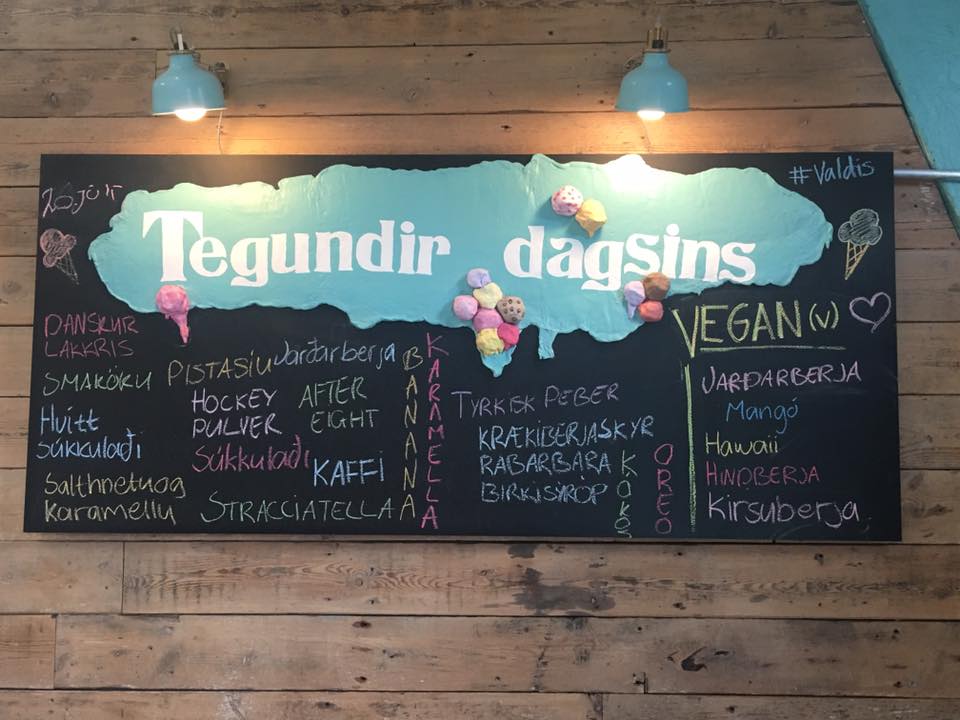 #Valdis
Tegundir dagsins
DANSKUR
LAKKRIS
SMAKÖKU
Hvítt
Súkkulaði
Salthnetuog
karamellu
PISTASÍU
HOCKEY
PULVER
Súkkulaði
STRACCIATELLA
Jarðarberja
AFTER
EIGHT
KAFFI
BANANA
KARAMELLA
TYRKISK PEBER
KRÆKIBERJASKYR
RABARBARA
BIRKISÝRÓP
KOKOS
OREO
VEGAN (V)
JARÐARBERJA
Mangó
Hawaii
HINDBERJA
Kirsuberja